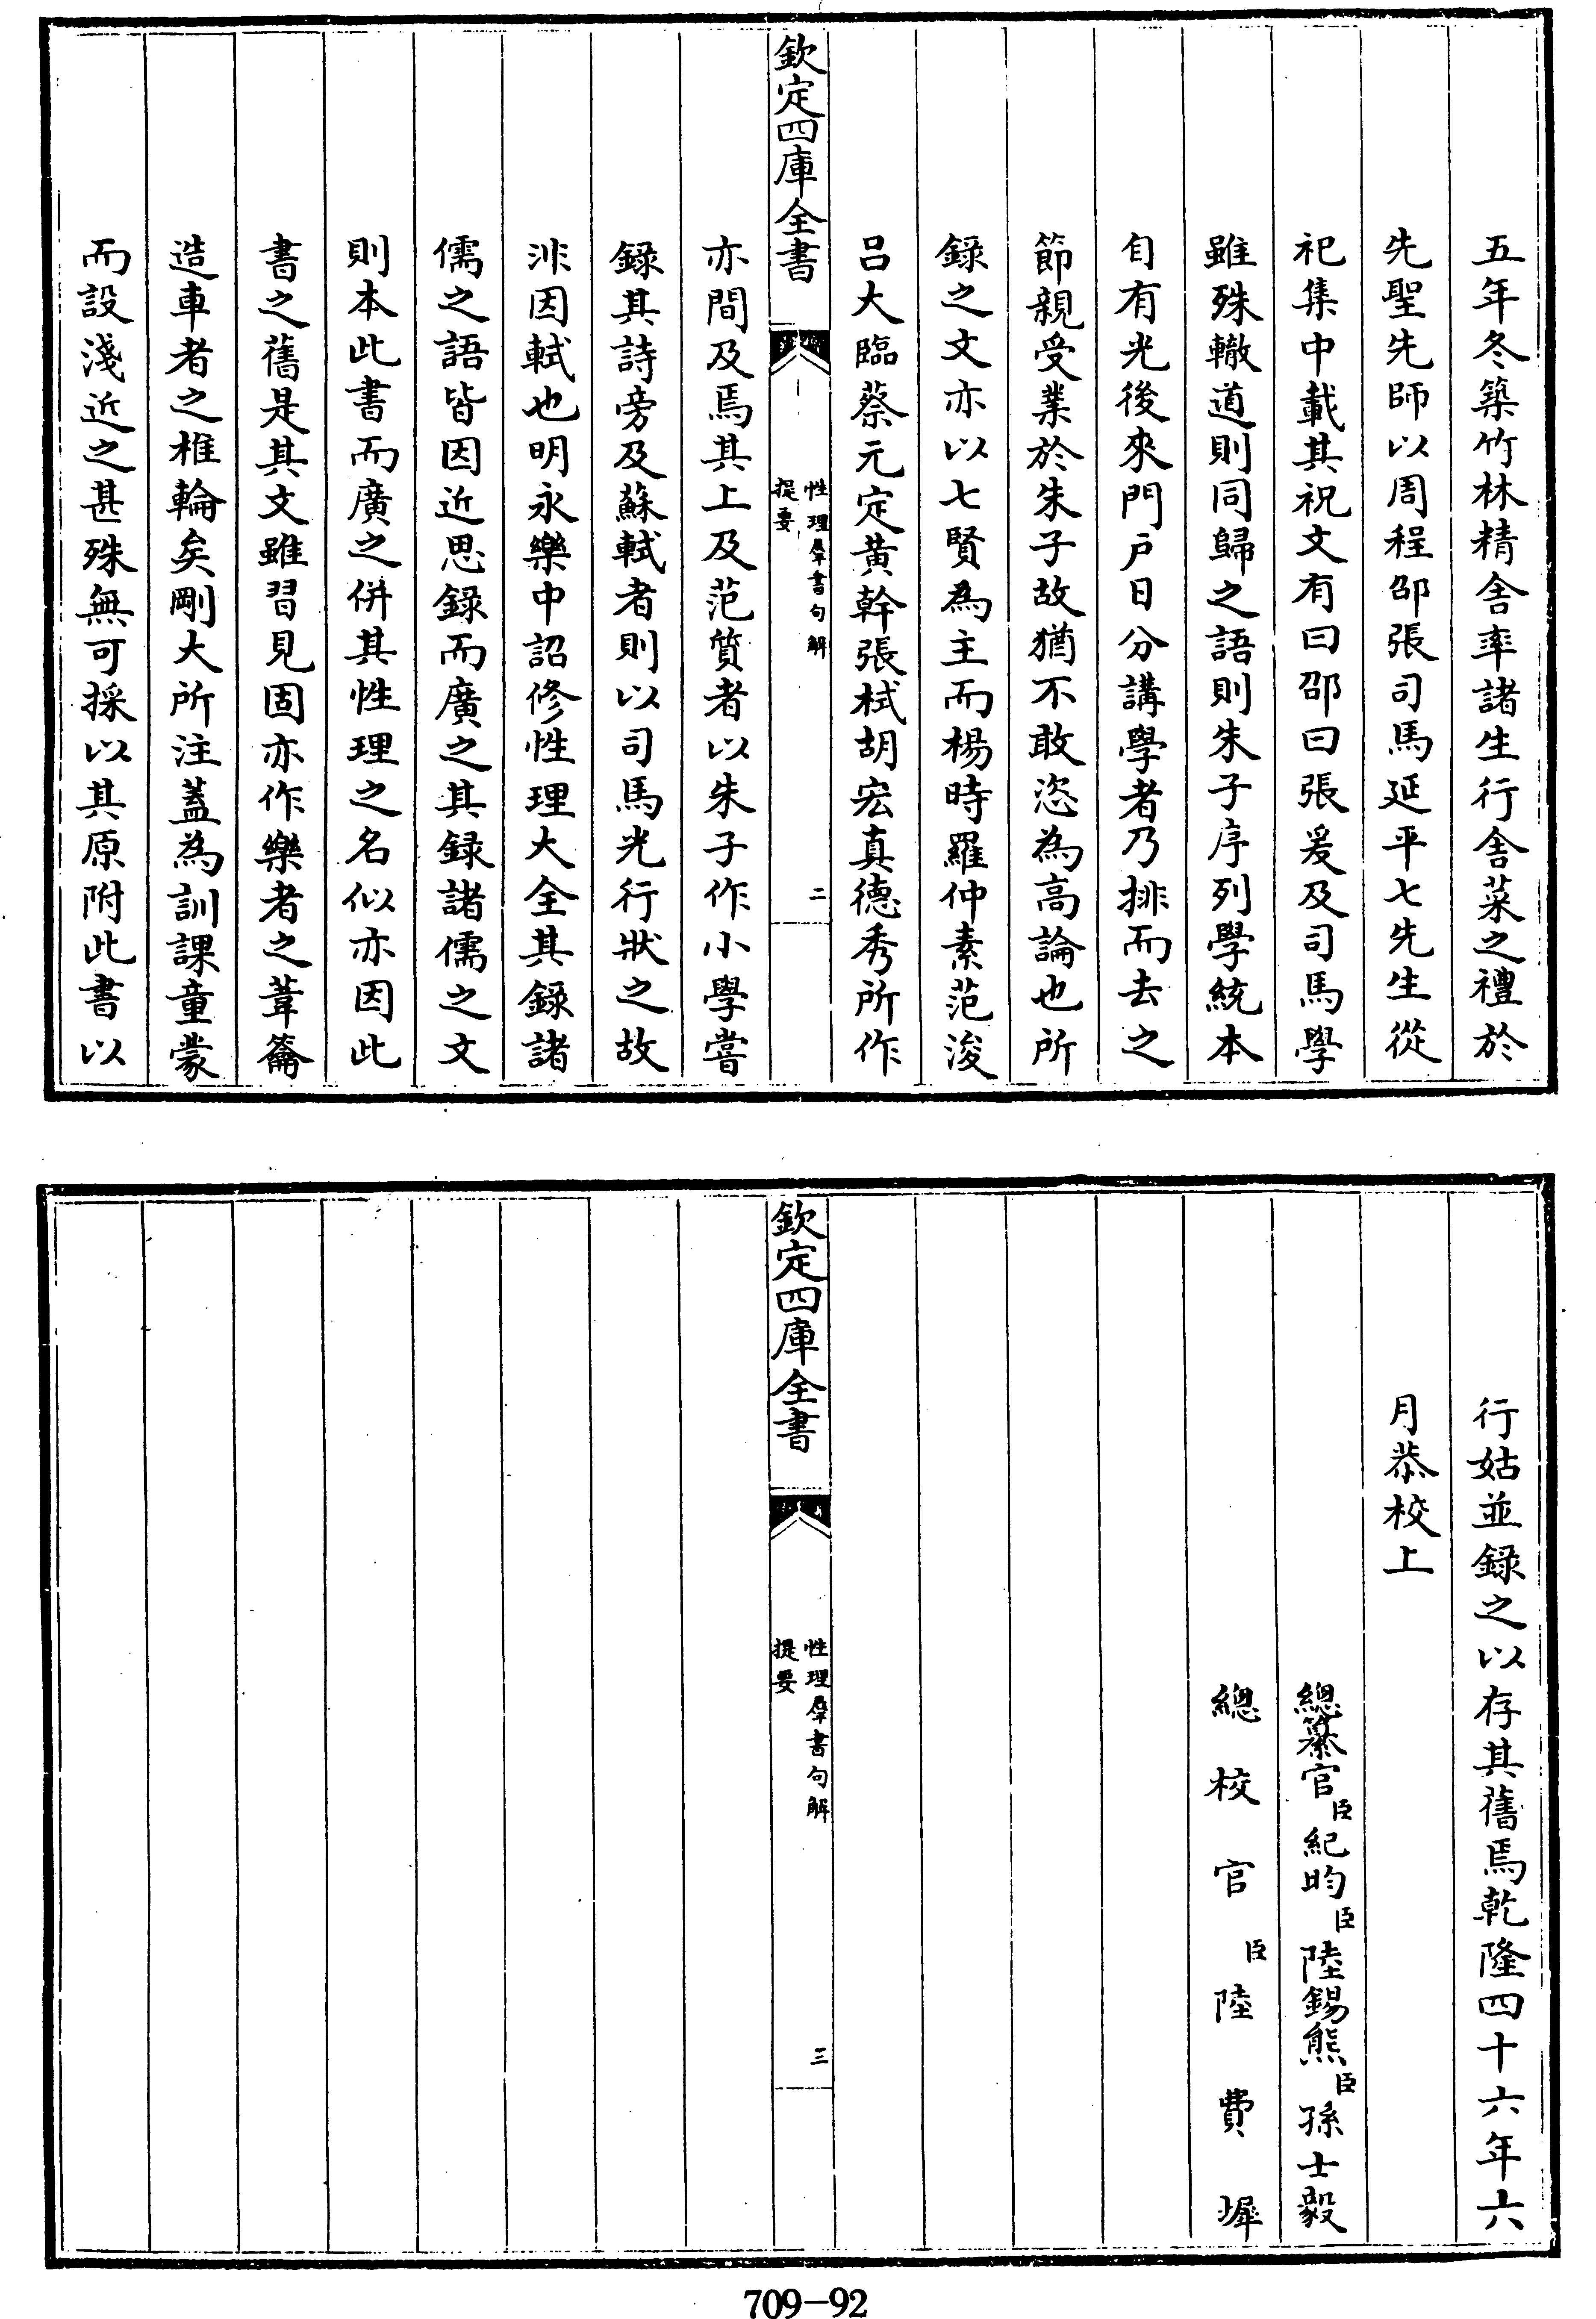 五年冬築竹林精舍率諸生行舍菜之禮於
先聖先師以周程邵張司馬延平七先生從
祀集中載其祝文有曰邵曰張爰及司馬學
雖殊轍道則同歸之語則朱子序列學統本
自有光後來門戶日分講學者乃排而去之
節親受業於朱子故猶不敢恣為高論也所
錄之文亦以七賢為主而楊時羅仲素范浚
呂大臨蔡元定黃幹張栻胡宏真德秀所作
欽定四庫全書
性理羣書句解
提要
二
亦間及焉其上及范質者以朱子作小學嘗
錄其詩旁及蘇軾者則以司馬光行狀之故
非因軾也明永樂中詔修性理大全其錄諸
儒之語皆因近思錄而廣之其錄諸儒之文
則本此書而廣之併其性理之名似亦因此
書之舊是其文雖習見固亦作樂者之葦籥
造車者之椎輪矣剛大所注蓋為訓課童蒙
而設淺近之甚殊無可採以其原附此書以
行姑並錄之以存其舊焉乾隆四十六年六
月恭校上
總纂官臣紀昀臣陸錫熊臣孫士毅
總校官臣陸費墀
欽定四庫全書
性理羣書句解
提要
三
709-92